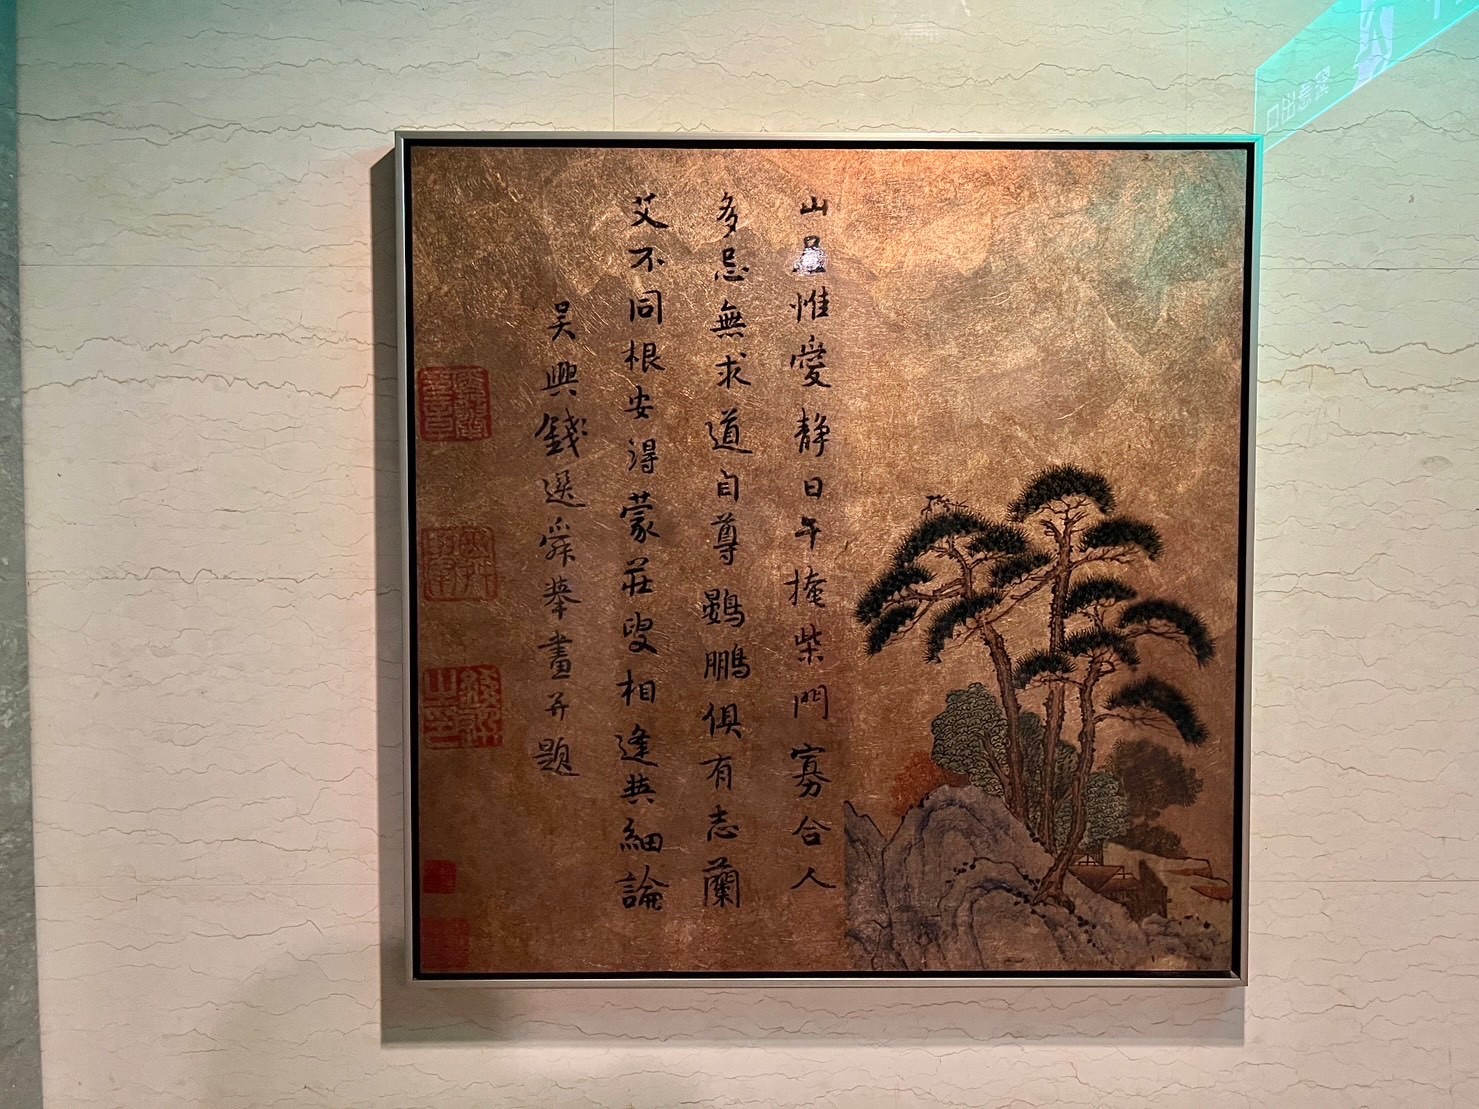 山居惟愛静日午掩柴門寡合人
多忌無求道自尊鷃鵬俱有志蘭
艾不同根安得蒙莊叟相逢共細論
吳興錢選舜舉畫并題